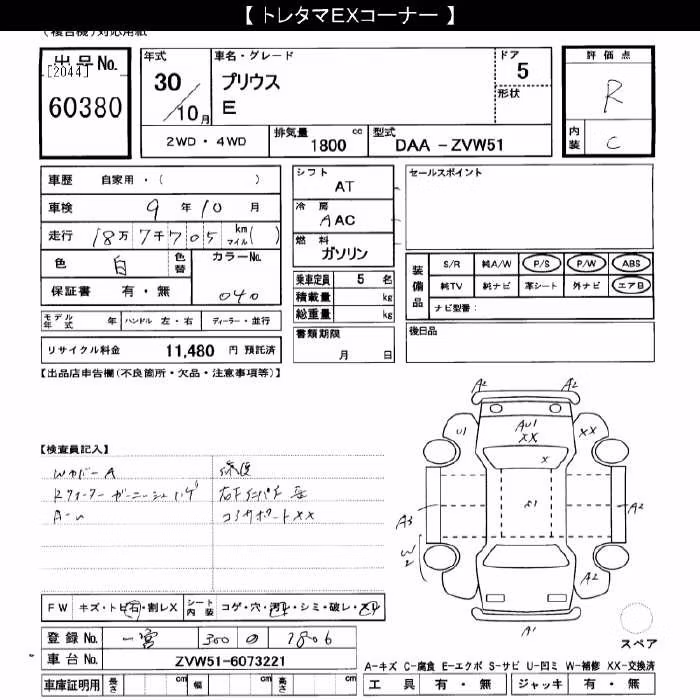 【 トレタマEXコーナー 】
(複合機)対応用紙
出品No.
[2044]
60380
年式
30
/10月
車名・グレード
プリウス
E
ドア
5
形状
評価点
R
内装
C
2WD・4WD
排気量 1800 cc
型式 DAA -ZVW51
車歴 自家用・( )
車検 9 年 10 月
走行 18万 7千 705 km マイル( )
色 白 色替
カラーNo.
040
保証書 有・無
モデル年式 年 ハンドル 左・右 ディーラー・並行
リサイクル料金 11,480 円 預託済
シフト
AT
冷房
AAC
燃料
ガソリン
乗車定員 5 名
積載量 kg
総重量 kg
書類期限
月 日
セールスポイント
装備品
S/R 純A/W P/S P/W ABS
純TV 純ナビ 革シート 外ナビ エアB
ナビ型番:
後日品
【出品店申告欄(不良箇所・欠品・注意事項等)】
【検査員記入】
Wカバー A
Rクォーターガーニーシュ ハゲ
A-U
修復
コアサポートXX
A2 A2
U1 AU1 XX XX
X
A3 A2
W2 A2
A1
FW キズ・トビ石・割レX
シート内装 コゲ・穴・汚レ・シミ・破レ・スレ
登録No. 一宮 300 の 7806
車台No. ZVW51-6073221
車庫証明用 長さ cm 幅 cm 高さ cm
スペア
A-キズ C-腐食 E-エクボ S-サビ U-凹ミ W-補修 XX-交換済
工具 有・無 ジャッキ 有・無